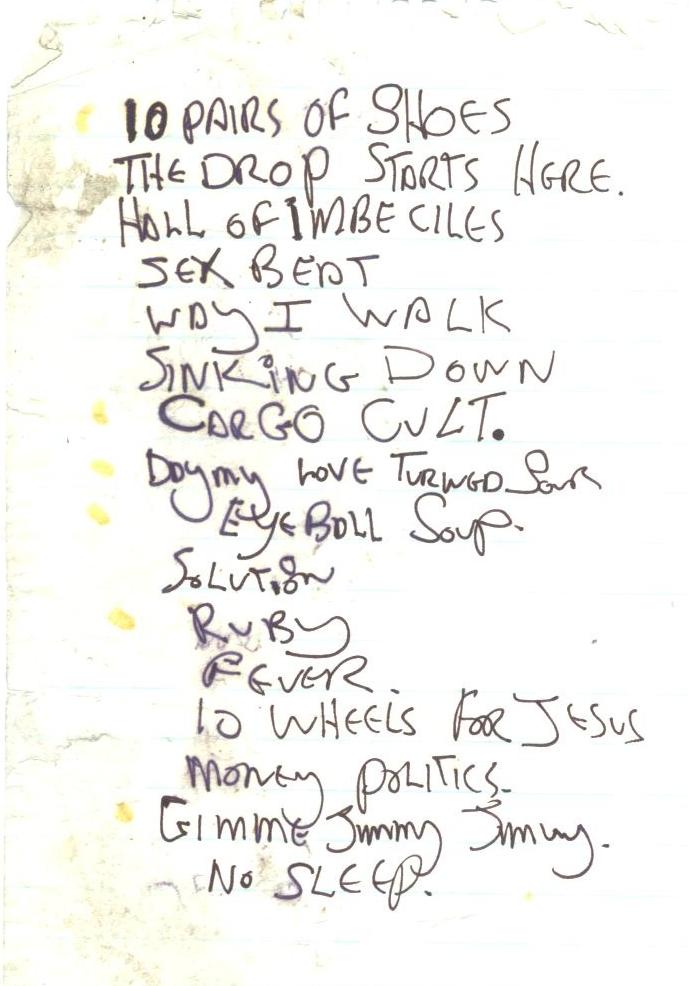 10 PAIRS OF SHOES
THE DROP STARTS HERE.
HALL OF IMBECILES
SEX BEAT
WAY I WALK
SINKING DOWN
CARGO CULT.
DAY MY LOVE TURNED SOUR
EYEBALL SOUP.
SOLUTION
RUBY
FEVER.
10 WHEELS FOR JESUS
MONEY POLITICS.
GIMME Jimmy Jimmy.
NO SLEEP.